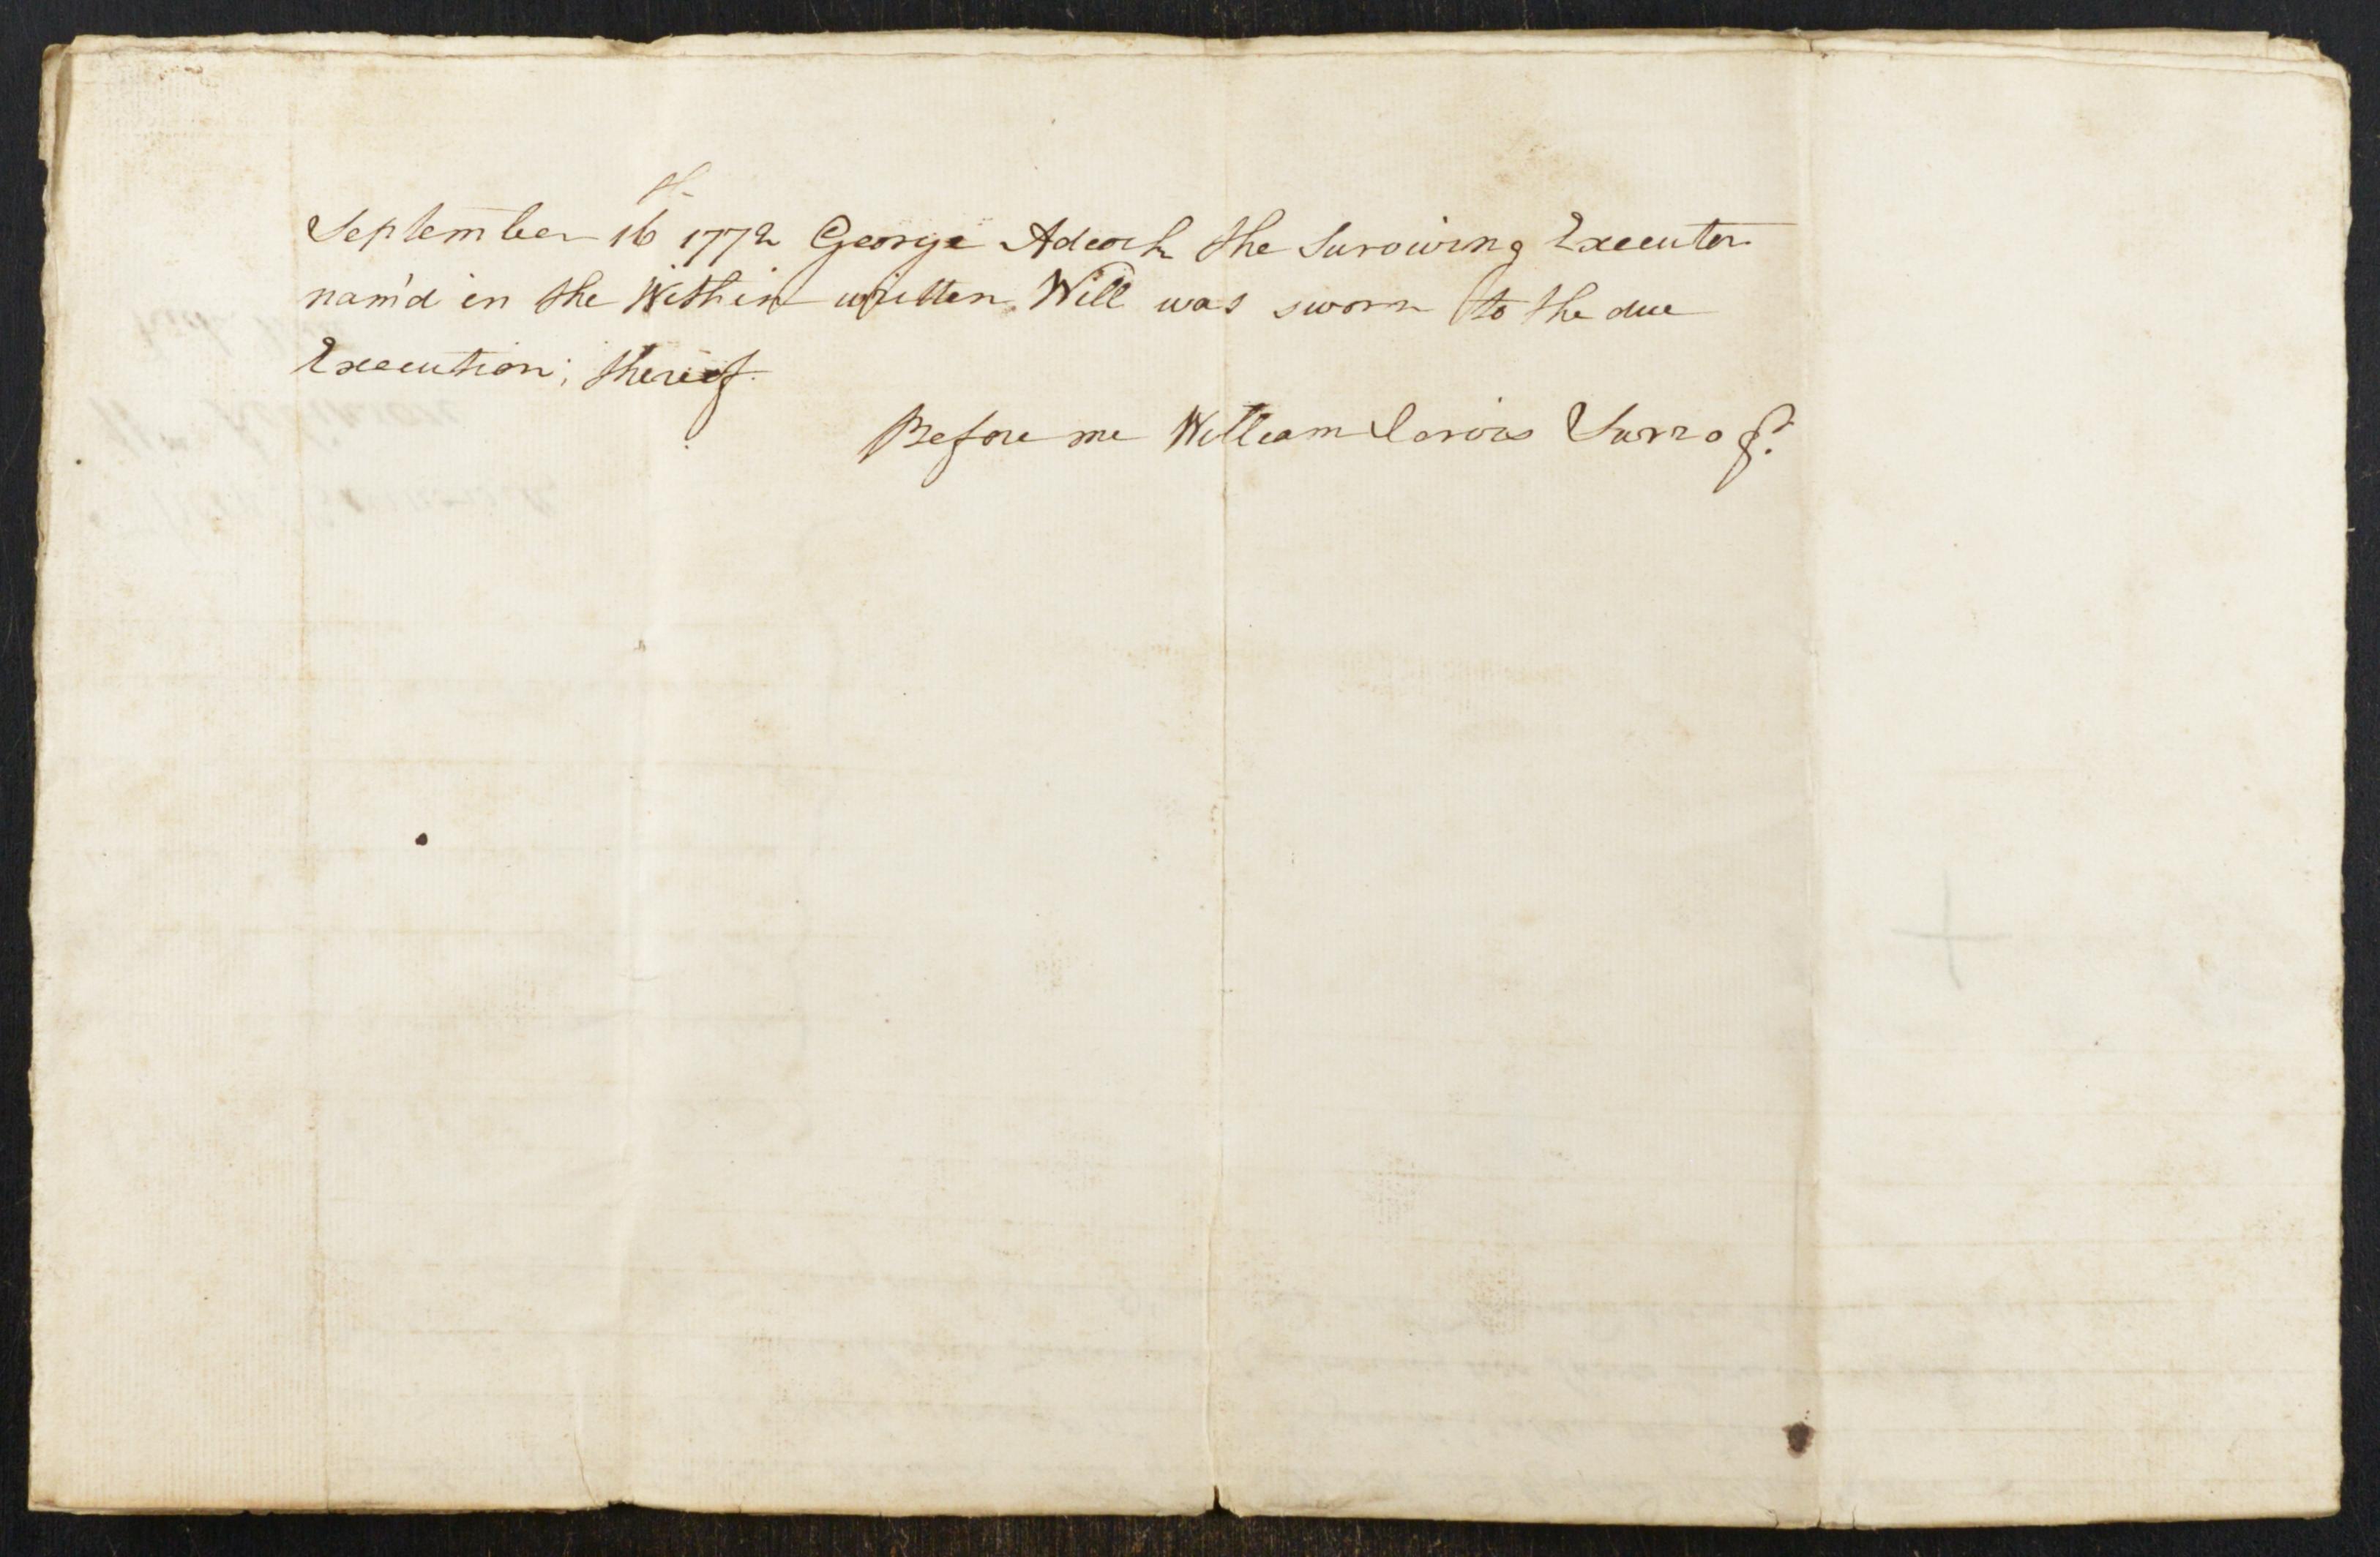 September 16th 1772 George Adcock the Surviving Executor
nam'd in the Within written Will was sworn to the due
Execution; thereof.
Before me William Jarvis Surrog.t